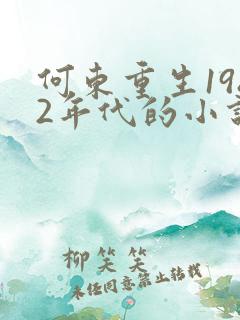 何东重生19
2年代的小
柳笑笑
未经同意禁止转载